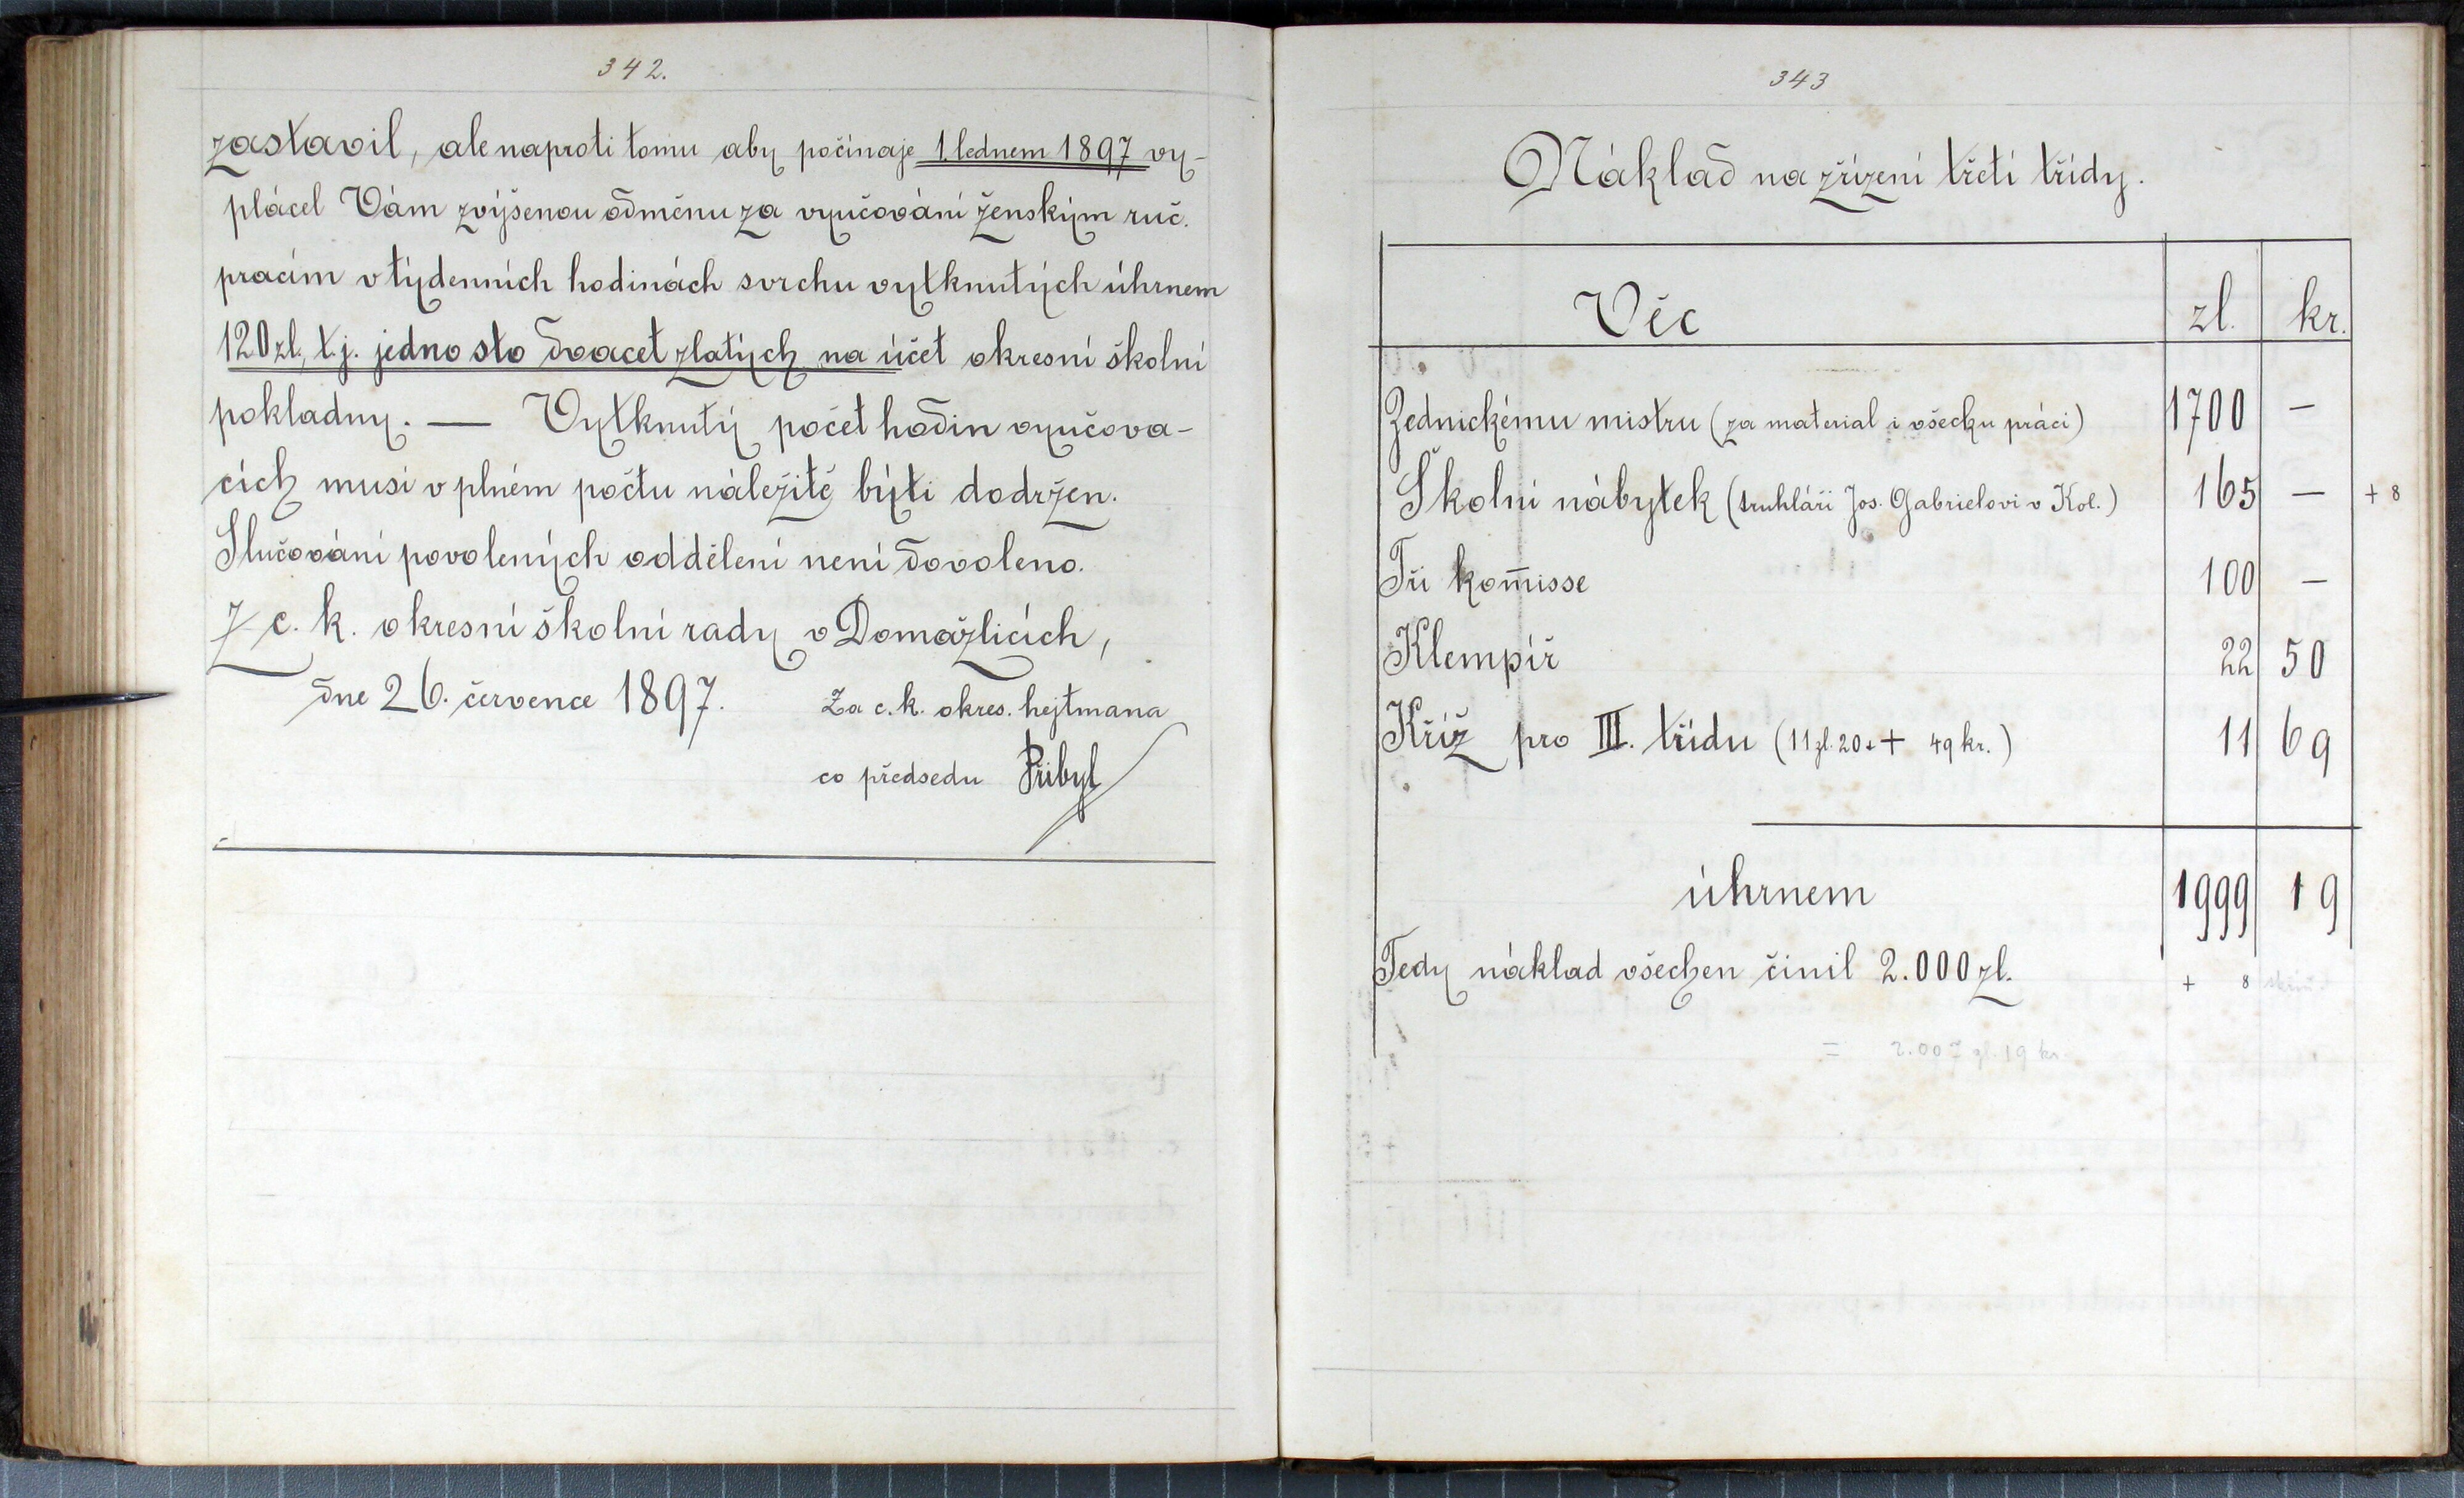 342.
zastavil, ale naproti tomu aby počínaje 1. lednem 1897 vy-
plácel Vám zvýšenou odměnu za vyučování ženským ruč.
pracím v týdenních hodinách svrchu vytknutých úhrnem
120 zl, t.j. jedno sto dvacet zlatých na účet okresní školní
pokladny. — Vytknutý počet hodin vyučova-
cích musí v plném počtu náležitě býti dodržen.
Slučování povolených oddělení není dovoleno.
Z c. k. okresní školní rady v Domažlicích,
dne 26. července 1897. Za c. k. okres. hejtmana
co předsedu Přibyl
343
Náklad na zřízení třetí třídy.
Věc zl. kr.
Zednickému mistru (za material i všecku práci) 1700 —
Školní nábytek (truhláři Jos. Gabrielovi v Kol.) 165 — + 8
Tři kom̅isse 100 —
Klempíř 22 50
Kříž pro III. třídu (11 zl. 20 + 49 kr.) 11 69
úhrnem 1999 19
Tedy náklad všechen činil 2.000 zl. + 8
= 2.007 zl. 19 kr